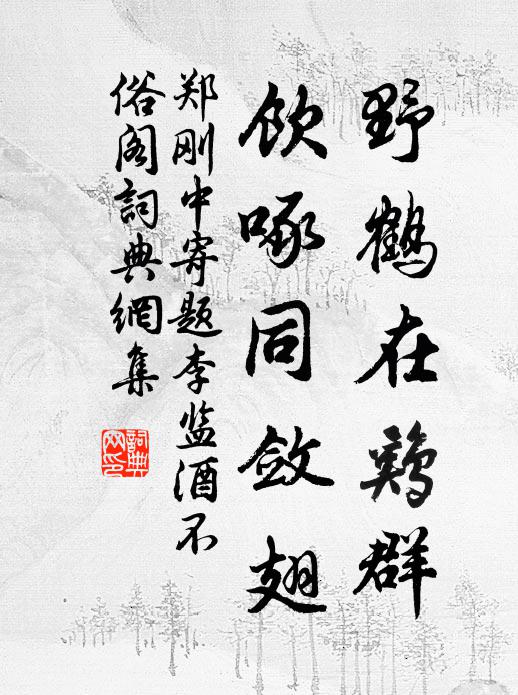 野鹤在鸡群
饮啄同敛翅
郑刚中寄题李监酒不
俗阁詞典網集
詞典網印